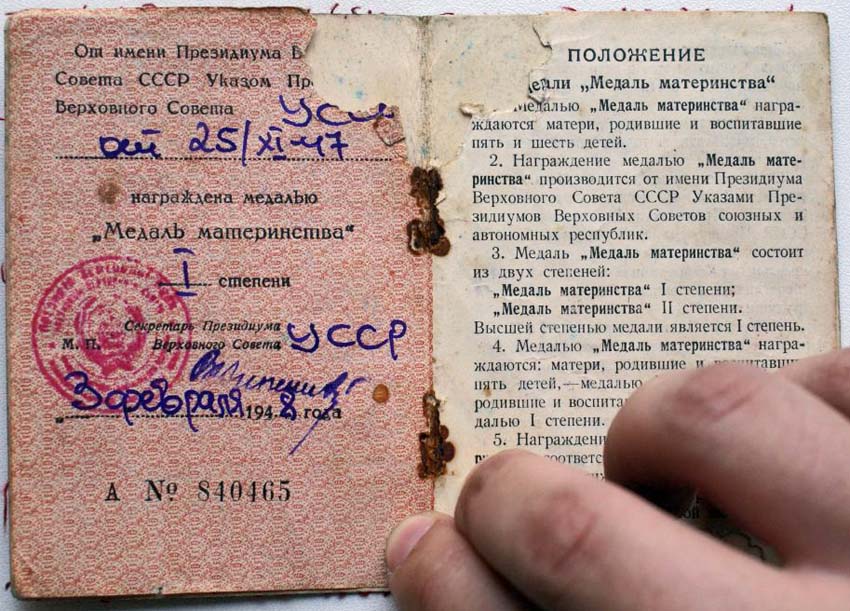 От имени Президиума В
Совета СССР Указом Пр
Верховного Совета УССР
от 25/XI 47
награждена медалью
„Медаль материнства“
I степени
Секретарь Президиума
М. П. Верховного Совета УССР
3 февраля 1948 года
А № 840465
ПОЛОЖЕНИЕ
„Медаль материнства“
Медалью „Медаль материнства“ награ-
ждаются матери, родившие и воспитавшие
пять и шесть детей.
2. Награждение медалью „Медаль мате-
ринства“ производится от имени Президиума
Верховного Совета СССР Указами Пре-
зидиумов Верховных Советов союзных и
автономных республик.
3. Медаль „Медаль материнства“ состоит
из двух степеней:
„Медаль материнства“ I степени;
„Медаль материнства“ II степени.
Высшей степенью медали является I степень.
4. Медалью „Медаль материнства“ награ-
ждаются: матери, родившие и воспитавши
пять детей,—медалью
родившие и воспита
далью I степени.
5. Награждени